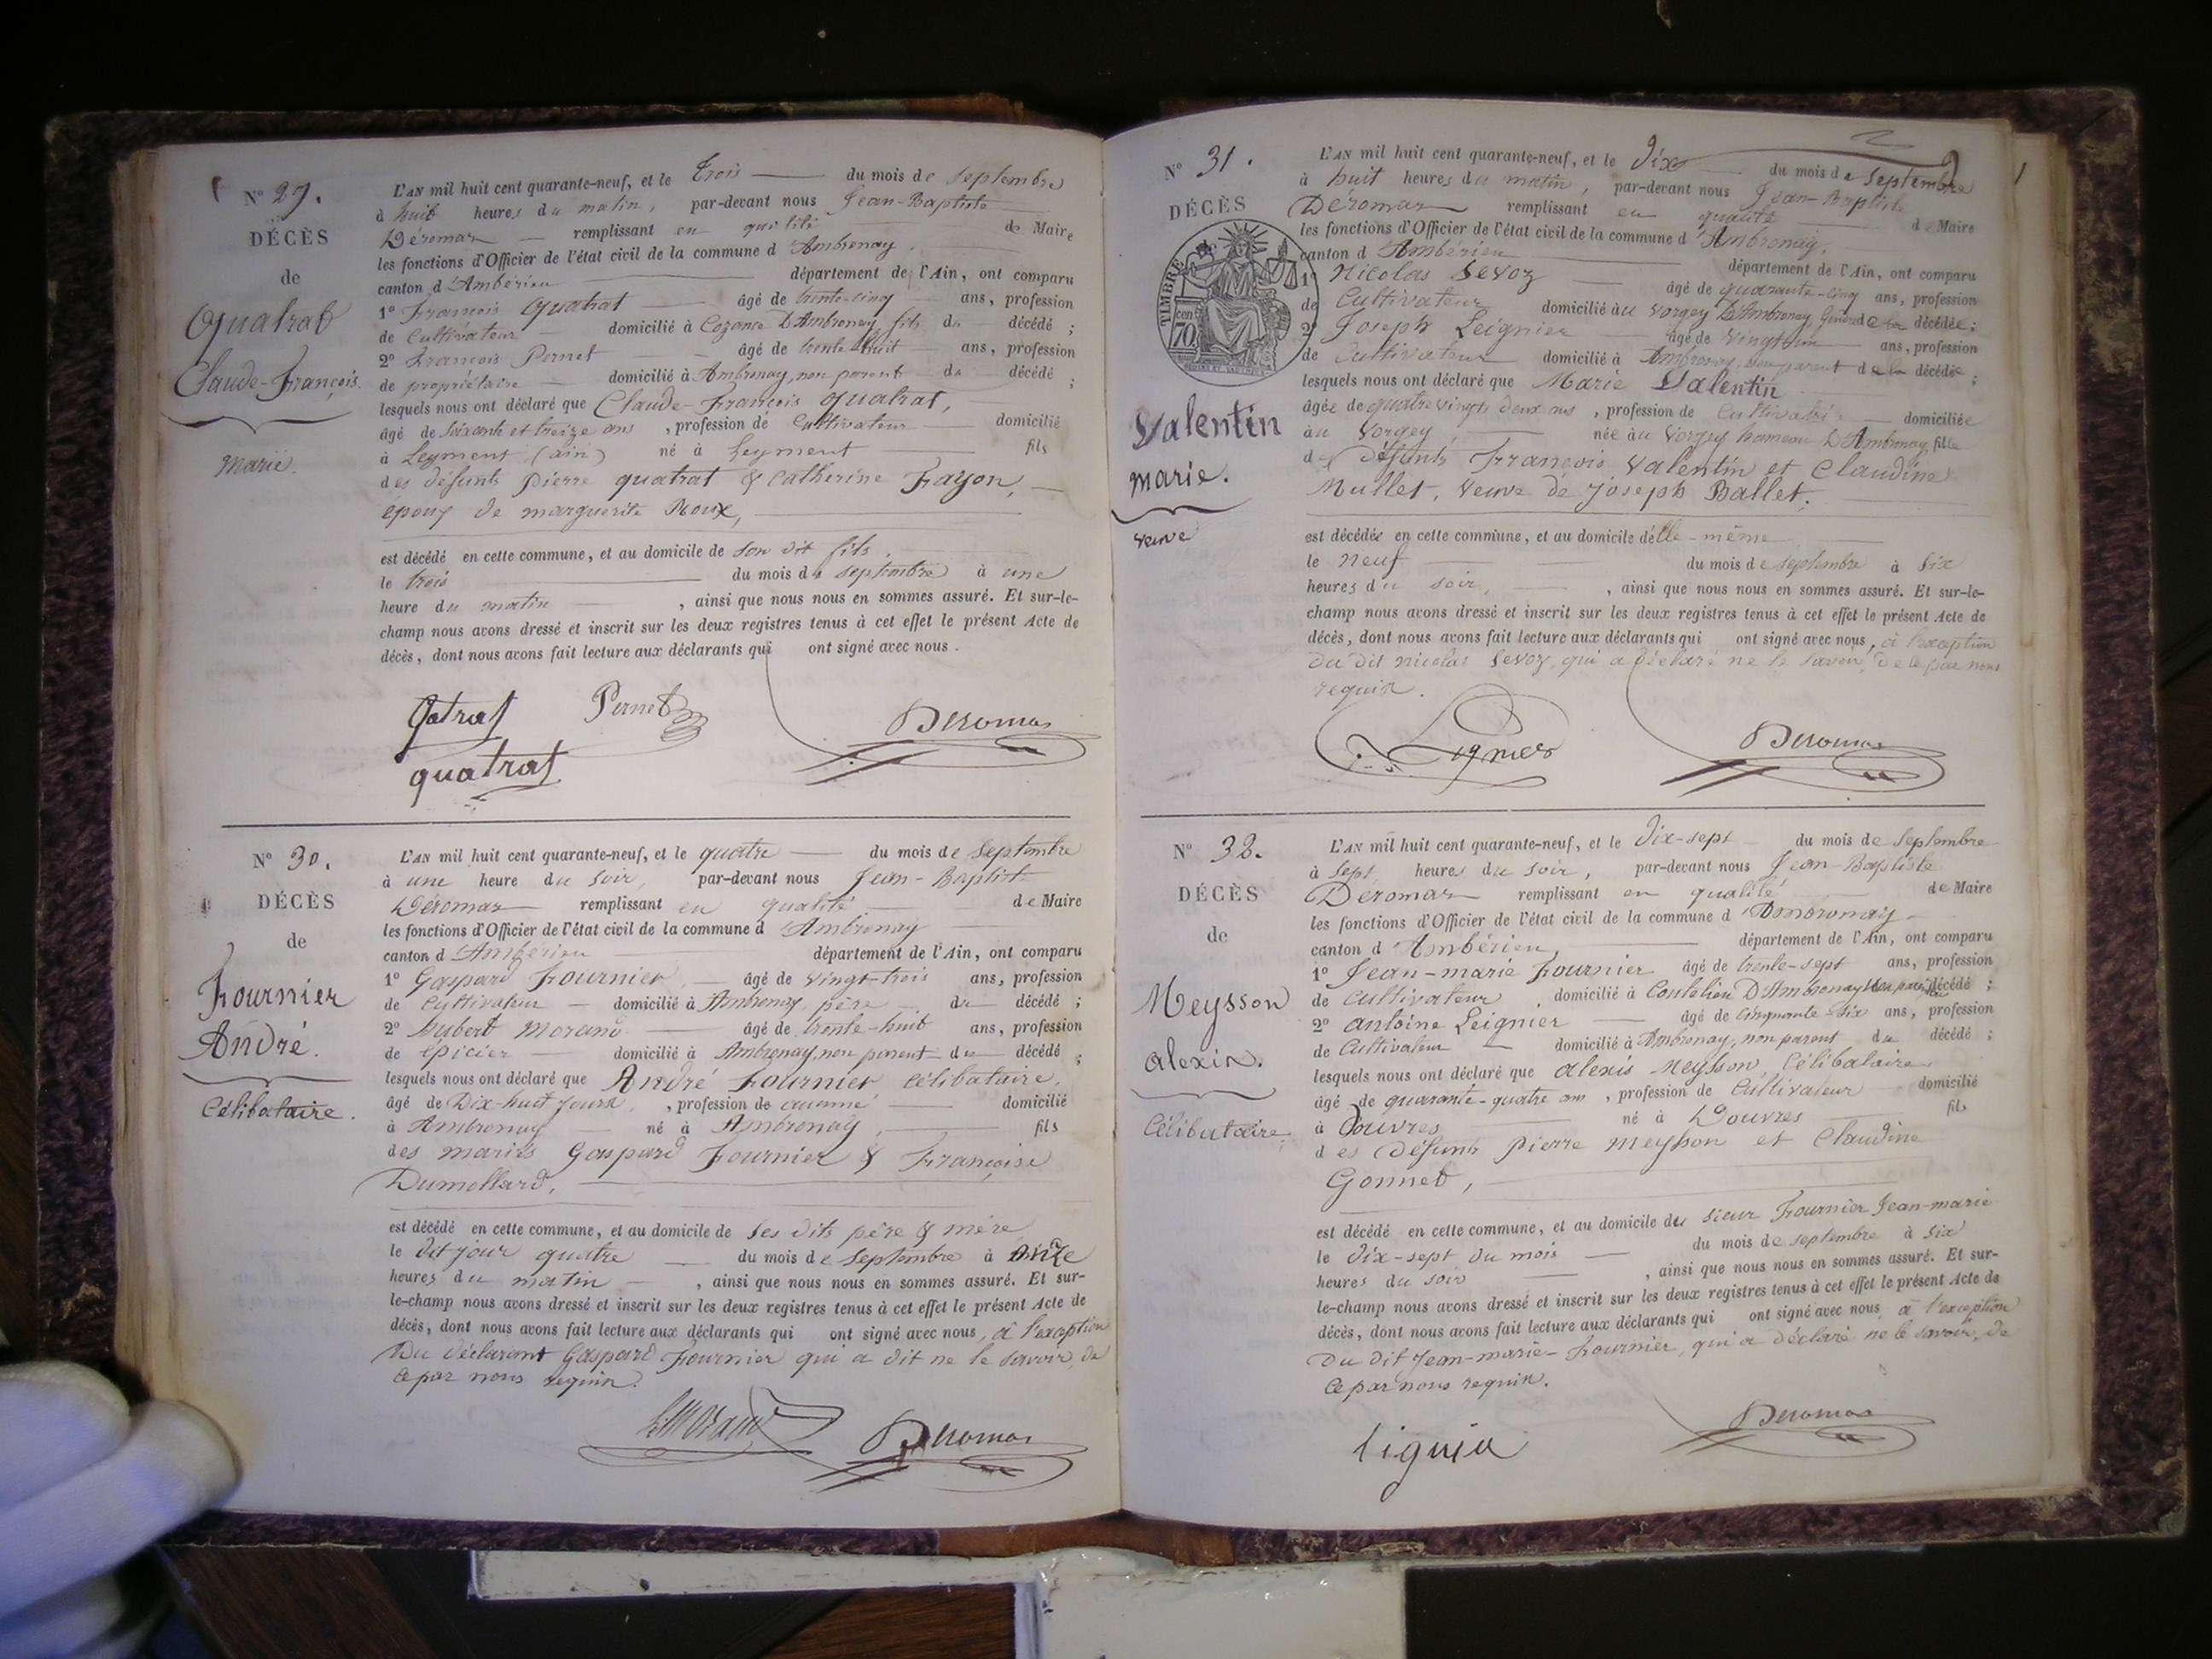 N° 29.
DÉCÈS
de
Quatrat
Claude-François.
Marié.
L'AN mil huit cent quarante-neuf, et le Trois du mois de Septembre
à huit heures du matin, par-devant nous Jean-Baptiste
Déromas remplissant en qualité de Maire
les fonctions d'Officier de l'état civil de la commune d'Ambronay.
canton d'Ambérieu département de l'Ain, ont comparu
1° François Quatrat âgé de trente-cinq ans, profession
de Cultivateur domicilié à Cozance D'Ambronay, fils du décédé ;
2° François Pernet âgé de trente huit ans, profession
de propriétaire domicilié à Ambronay, non parent du décédé ;
lesquels nous ont déclaré que Claude-François quatrat,
âgé de Soixante et treize ans, profession de Cultivateur domicilié
à Leyment (ain) né à Leyment fils
des défunts pierre quatrat & Catherine Frayon,
époux de marguerite Roux,
est décédé en cette commune, et au domicile de son dit fils.
le trois du mois de Septembre à une
heure du matin, ainsi que nous nous en sommes assuré. Et sur-le-
champ nous avons dressé et inscrit sur les deux registres tenus à cet effet le présent Acte de
décès, dont nous avons fait lecture aux déclarants qui ont signé avec nous.
Qatrat Pernet Deromas
quatrat
N° 30.
DÉCÈS
de
Fournier
André.
Célibataire.
L'AN mil huit cent quarante-neuf, et le quatre du mois de Septembre
à une heure du soir, par-devant nous Jean-Baptiste
Déromas remplissant en qualité de Maire
les fonctions d'Officier de l'état civil de la commune d'Ambronay
canton d'Ambérieu département de l'Ain, ont comparu
1° Gaspard Fournier âgé de vingt-trois ans, profession
de Cultivateur domicilié à Ambronay, père du décédé ;
2° hubert Morand âgé de trente-huit ans, profession
de épicier domicilié à Ambronay, non parent du décédé ;
lesquels nous ont déclaré que André Fournier célibataire,
âgé de Dix-huit jours, profession de aucune domicilié
à Ambronay né à Ambronay, fils
des mariés Gaspard Fournier & Françoise
Dumollard,
est décédé en cette commune, et au domicile de ses dits père & mère
le dit jour quatre du mois de Septembre à onze
heures du matin, ainsi que nous nous en sommes assuré. Et sur-
le-champ nous avons dressé et inscrit sur les deux registres tenus à cet effet le présent Acte de
décès, dont nous avons fait lecture aux déclarants qui ont signé avec nous, à l'exception
Du déclarant Gaspard Fournier qui a dit ne le savoir, de
ce par nous requis.
hMorand Deromas
N° 31.
DÉCÈS
TIMBRE
cen 70
Valentin
marie.
veuve
L'AN mil huit cent quarante-neuf, et le Dix du mois de Septembre
à huit heures du matin, par-devant nous Jean-Baptiste
Déromas remplissant en qualité de Maire
les fonctions d'Officier de l'état civil de la commune d'Ambronay,
canton d'Ambérieu département de l'Ain, ont comparu
1° Nicolas Sevoz âgé de quarante-cinq ans, profession
de Cultivateur domicilié au Vorgey D'Ambronay Gendre de la décédée ;
2° Joseph Leignier âgé de Vingt un ans, profession
de Cultivateur domicilié à Ambronay, non parent de la décédée ;
lesquels nous ont déclaré que Marie Valentin
âgée de quatre vingt deux ans, profession de Cultivatrice domiciliée
au Vorgey née au Vorgey hameau D'Ambronay, fille
des défunts François Valentin et Claudine
Mullet, Veuve de Joseph Ballet,
est décédée en cette commune, et au domicile d'elle-même
le neuf du mois de Septembre à Six
heures du soir, ainsi que nous nous en sommes assuré. Et sur-le-
champ nous avons dressé et inscrit sur les deux registres tenus à cet effet le présent Acte de
décès, dont nous avons fait lecture aux déclarants qui ont signé avec nous, à l'exception
du dit nicolas Sevoz, qui a déclaré ne le savoir, de le par nous
requis.
Lignier Deromas
N° 32.
DÉCÈS
de
Meysson
alexis.
Célibataire.
L'AN mil huit cent quarante-neuf, et le Dix-sept du mois de Septembre
à sept heures du soir, par-devant nous Jean-Baptiste
Deromas remplissant en qualité de Maire
les fonctions d'Officier de l'état civil de la commune d'Ambronay
canton d'Ambérieu, département de l'Ain, ont comparu
1° Jean-marie Fournier âgé de trente-sept ans, profession
de Cultivateur, domicilié à Coutelieu D'Ambronay non parent du décédé ;
2° antoine Leignier âgé de cinquante six ans, profession
de Cultivateur domicilié à Ambronay, non parent du décédé ;
lesquels nous ont déclaré que alexis Meysson, Célibataire,
âgé de quarante-quatre ans, profession de Cultivateur domicilié
à Douvres né à Douvres fils
des Défunts pierre meysson et Claudine
Gonnet,
est décédé en cette commune, et au domicile du sieur Fournier Jean-marie
le Dix-sept du mois du mois de septembre à six
heures du soir, ainsi que nous nous en sommes assuré. Et sur-
le-champ nous avons dressé et inscrit sur les deux registres tenus à cet effet le présent Acte de
décès, dont nous avons fait lecture aux déclarants qui ont signé avec nous, à l'exception
Du dit Jean-marie-Fournier, qui a déclaré ne le savoir, de
ce par nous requis.
Deromas